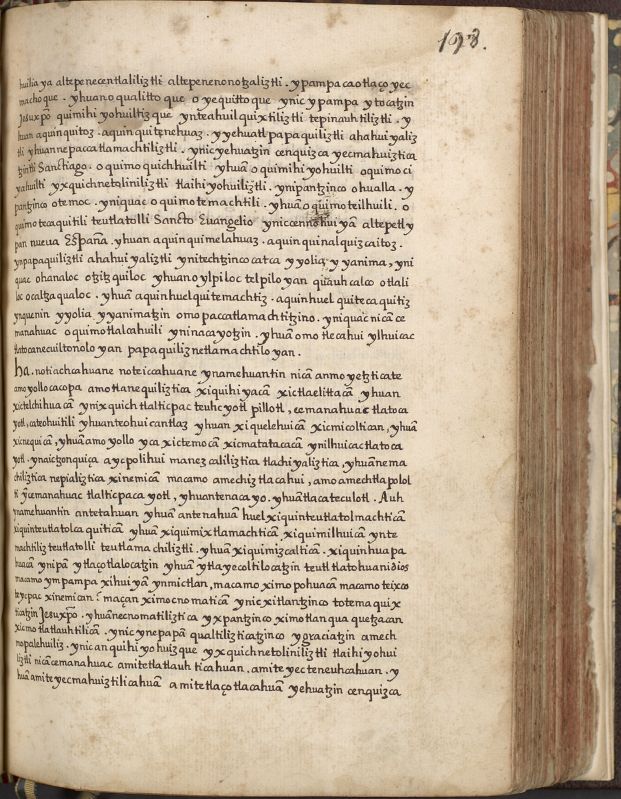 198.
huilia ya altepenecentlaliliztli altepenenonotzaliztli . ypampa ca otlaço yec
macho que . yhuan o qualitto que o yequitto que ynic ypampa ytocatzin
Jesuxpō quimihi yohuiltizque ynteahuilquixtiliztli tepinauhtiliztli . y
huan aquin quitoz . aquin quitenehuaz . yyehuatl papaquiliztli ahahuiyaliz
tli yhuan nepaccatlamachtiliztli . ynic yehuatzin cenquizca yecmahuiztica
tzintli Sanctiago . o quimo quichhuilti yhuā o quimihi yohuilti o quimo ci
yahuilti yxquich netoliniliztli tlaihiyohuiliztli . ynipantzinco ohualla . y
pantzinco otemoc . yniquac o quimo temachtili . yhuā o quimo teilhuili . o
quimo tecaquitili teutlatolli Sancto Euangelio ynic cennohuiyā altepetl y
pan nueua España . yhuan aquin quimelahuaz . aquin quinalquizcaitoz .
ynpapaquiliztli ahahuiyaliztli ynitechtzinco catca yyolia yyanima , yni
quac ohanaloc otzitzquiloc yhuan oylpiloc telpiloyan quauhcalco otlali
loc ocaltzaqualoc . yhuā aquin huel quitemachtiz . aquin huel quitecaquitiz
ynquenin yyolia yyanimatzin omopaccatlamachtitzino . yniquac nicā ce
manahuac oquimotlalcahuili yninacayotzin . yhuā omotlecahui ylhuicac
tlatocanecuiltonoloyan papaquiliznetlamachtiloyan .
ha . notiachcahuane noteiccahuane ynamehuantin nicā anmoyetzticate
amoyollocacopa amotlanequiliztica xiquihiyacā xictlaelittacā yhuan
xictelchihuacā ynixquich tlalticpac teuhcyotl pillotl , cemanahuac tlatoca
yotl , cateohuitili yhuanteohuicantlaz yhuan xiquelehuicā xicmicoltican , yhuā
xicnequicā , yhuā amoyolloya xictemocā xicmatatacacā ynilhuicac tlatoca
yotl . ynaictzonquiça aycpolihui manezcaliliztica tlachiyaliztica , yhuā nema
chiliztica nepializtica xinemicā macamo amechiztlacahui , amo amechtlapolol
ti ycemanahuac tlalticpacayotl , yhuantenacayo . yhuā tlacateculotl . Auh
ynamehuantin antetahuan yhuā antenahuā huel xiquinteutlatolmachticā
xiquinteutlatolcaquiticā yhuā xiquimixtlamachticā xiquimilhuicā ynte
machtiliz teutlatolli teutlamachiliztli . yhuā xiquimizcalticā . xiquinhuapa
huacā ynipā ytlaçotlalocatzin yhuā ytlayecoltilocatzin teutl tlatohuani dios
macamo ympampa xihuiyā ynmictlan , macamo ximopohuacā macamo teixco
teycpac xinemican : maçan ximocnomaticā ynicxitlantzinco totemaquix
ticatzin Jesuxpō . yhuā necnomatiliztica yxpantzinco ximotlanquaquetzacan
xicmotlatlauhtilicā . ynic ynepapā qualtilizticatzinco ygraciatzin amech
mopalehuiliz . ynic anquihiyohuizque yyxquich netoliniliztli tlaihiyohui
liztli nicā cemanahuac amitetlatlauhticahuan . amiteyecteneuhcahuan . y
huā amiteyecmahuiztilicahuā amitetlaçotlacahuā yehuatzin cenquizca